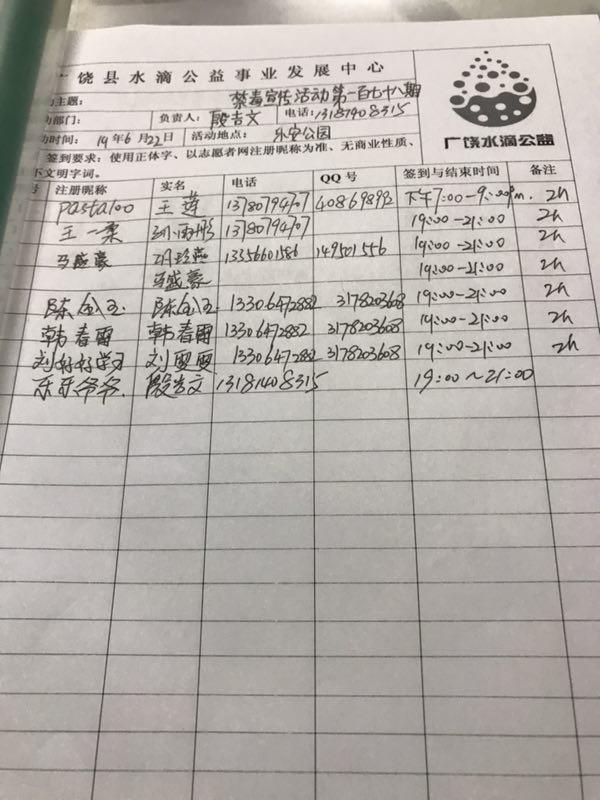 广饶县水滴公益事业发展中心
主题: 禁毒宣传活动第一百七十八期
动部门: 负责人: 殷吉文 电话: 13181408315
动时间: 19年6月22日 活动地点: 乐安公园
广饶水滴公益
签到要求: 使用正体字、以志愿者网注册昵称为准、无商业性质、
不文明字词。
号 注册昵称 实名 电话 QQ号 签到与结束时间 备注
pasta100 王莲 13780794707 408698992 下午7:00-9:00pm. 2h
王一 13780794707 19:00-21:00 2h
马盛豪 胡 13356601586 149501556 19:00-21:00 2h
马盛豪 19:00-21:00 2h
陈金玉 陈金玉 13306472882 3178203608 19:00-21:00 2h
韩春雷 韩春雷 13306472882 3178203608 19:00-21:00 2h
刘好好学习 刘雯雯 13306472882 3178203608 19:00-21:00 2h
乐乐爷爷. 殷吉文 13181408315 19:00~21:00